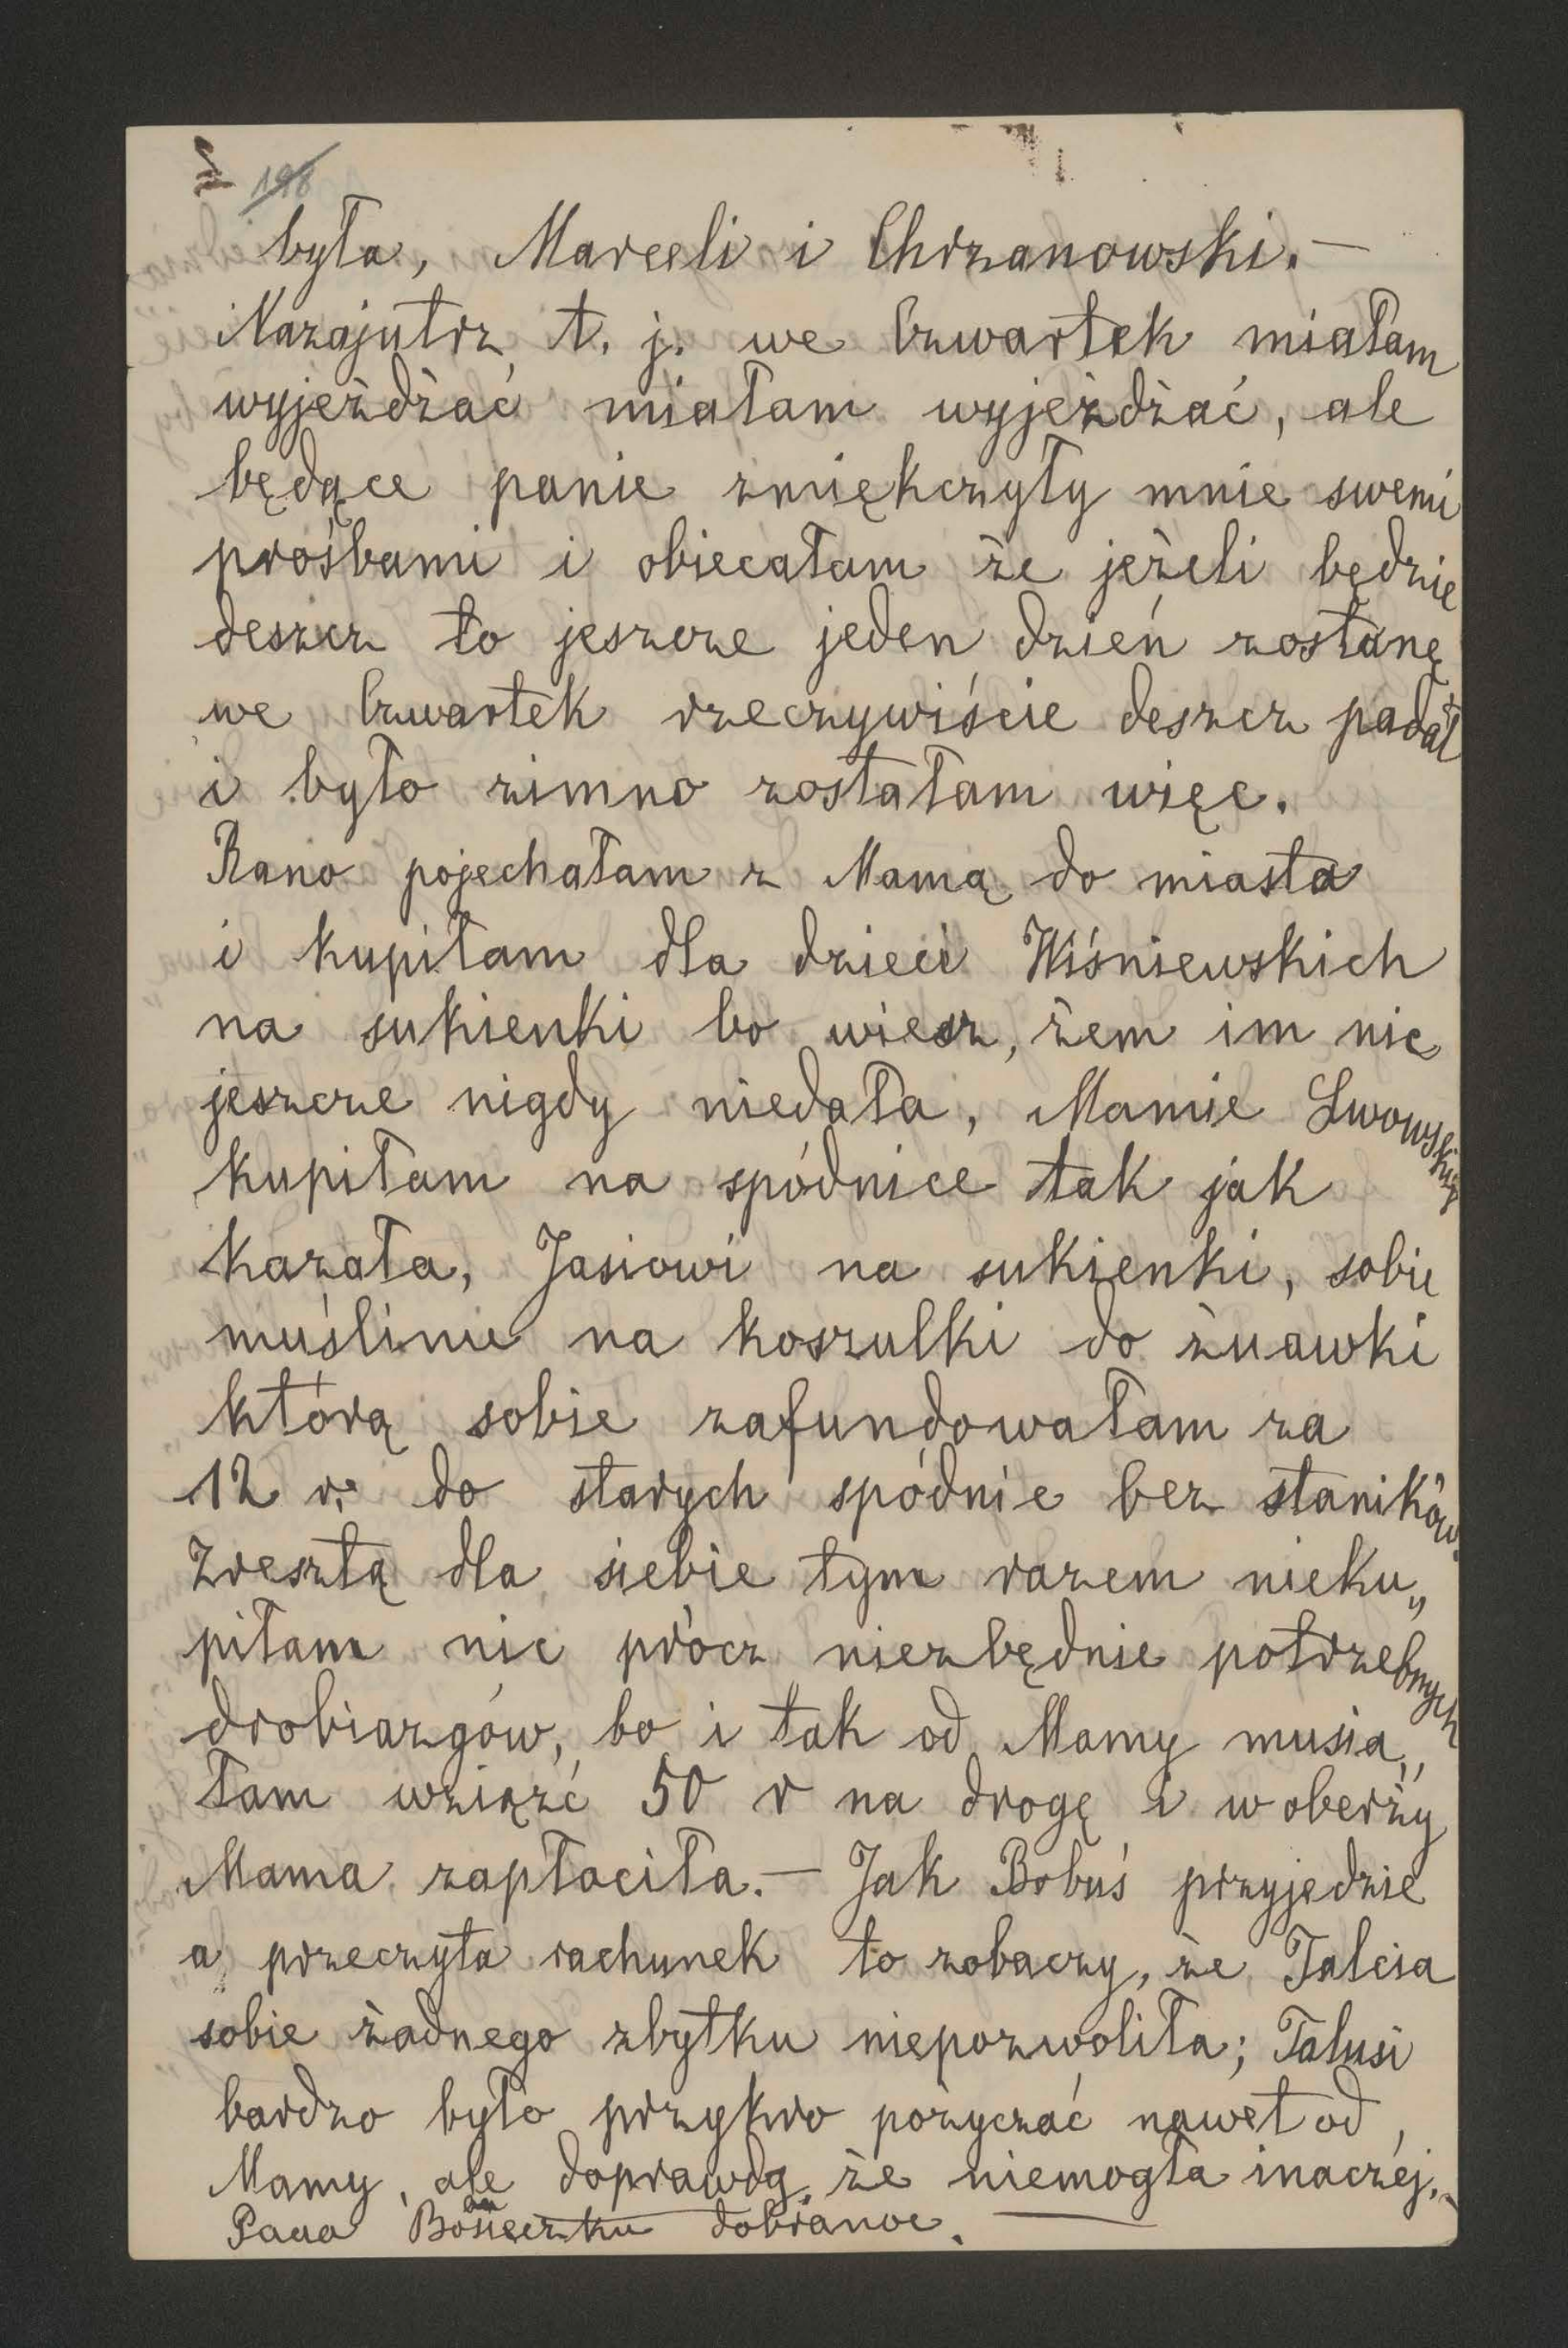 198
była, Marceli i Chrzanowski. —
Nazajutrz t. j. we Czwartek miałam
wyjeżdżać miałam wyjeżdżać, ale
będące panie zmiękczyły mnie swemi
prośbami i obiecałam że jeżeli będzie
deszcz to jeszcze jeden dzień zostanę
we Czwartek rzeczywiście deszcz padał
i było zimno zostałam więc.
Rano pojechałam z Mamą do miasta
i kupiłam dla dzieci Wiśniewskich
na sukienki bo wiesz, żem im nic
jeszcze nigdy niedała, Mamie Lwowskiej
kupiłam na spódnice tak jak
kazała, Jasiowi na sukienki, sobie
muślinu na koszulki do żuawki
którą sobie zafundowałam za
12 r. do starych spódnic bez staników.
Zresztą dla siebie tym razem nieku„
piłam nic prócz niezbędnie potrzebnych
drobiazgów, bo i tak od Mamy musia„
łam wziąźć 50 r na drogę i w oberży
Mama zapłaciła. — Jak Bobuś przyjedzie
a przeczyta rachunek to zobaczy, że Talcia
sobie żadnego zbytku niepozwoliła; Talusi
bardzo było przykro pożyczać nawet od
Mamy, ale doprawdy, że niemogła inaczéj. —
Paua dobranoc. —